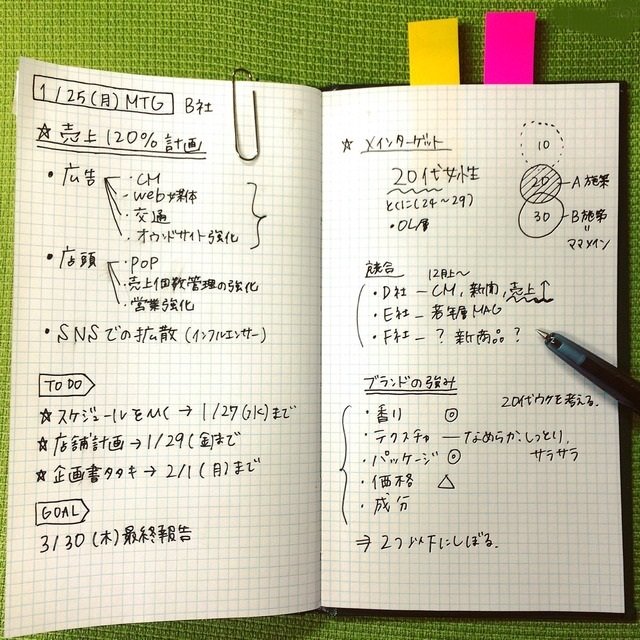 1/25(月)MTG B社
☆売上120%計画
・広告
・CM
・Web媒体
・交通
・オウンドサイト強化
・店頭
・POP
・売上個数管理の強化
・営業強化
・SNSでの拡散(インフルエンサー)
TO DO
☆スケジュールをMC→1/27(GK)まで
☆店舗計画→1/29(金)まで
☆企画書タタキ→2/1(月)まで
GOAL
3/30(木)最終報告
☆メインターゲット
20代女性
とくに(24〜29)
・OL層
10
20 A施策
30 B施策
=
ママメイン
競合 12月上〜
・D社ーCM,新聞,売上↑
・E社ー若年層MAG
・F社ー?新商品?
ブランドの強み
20代ウケを考える.
・香り ◎
・テクスチャーなめらか,しっとり,
サラサラ
・パッケージ ◎
・価格 △
・成分
⇒2つ以下にしぼる.